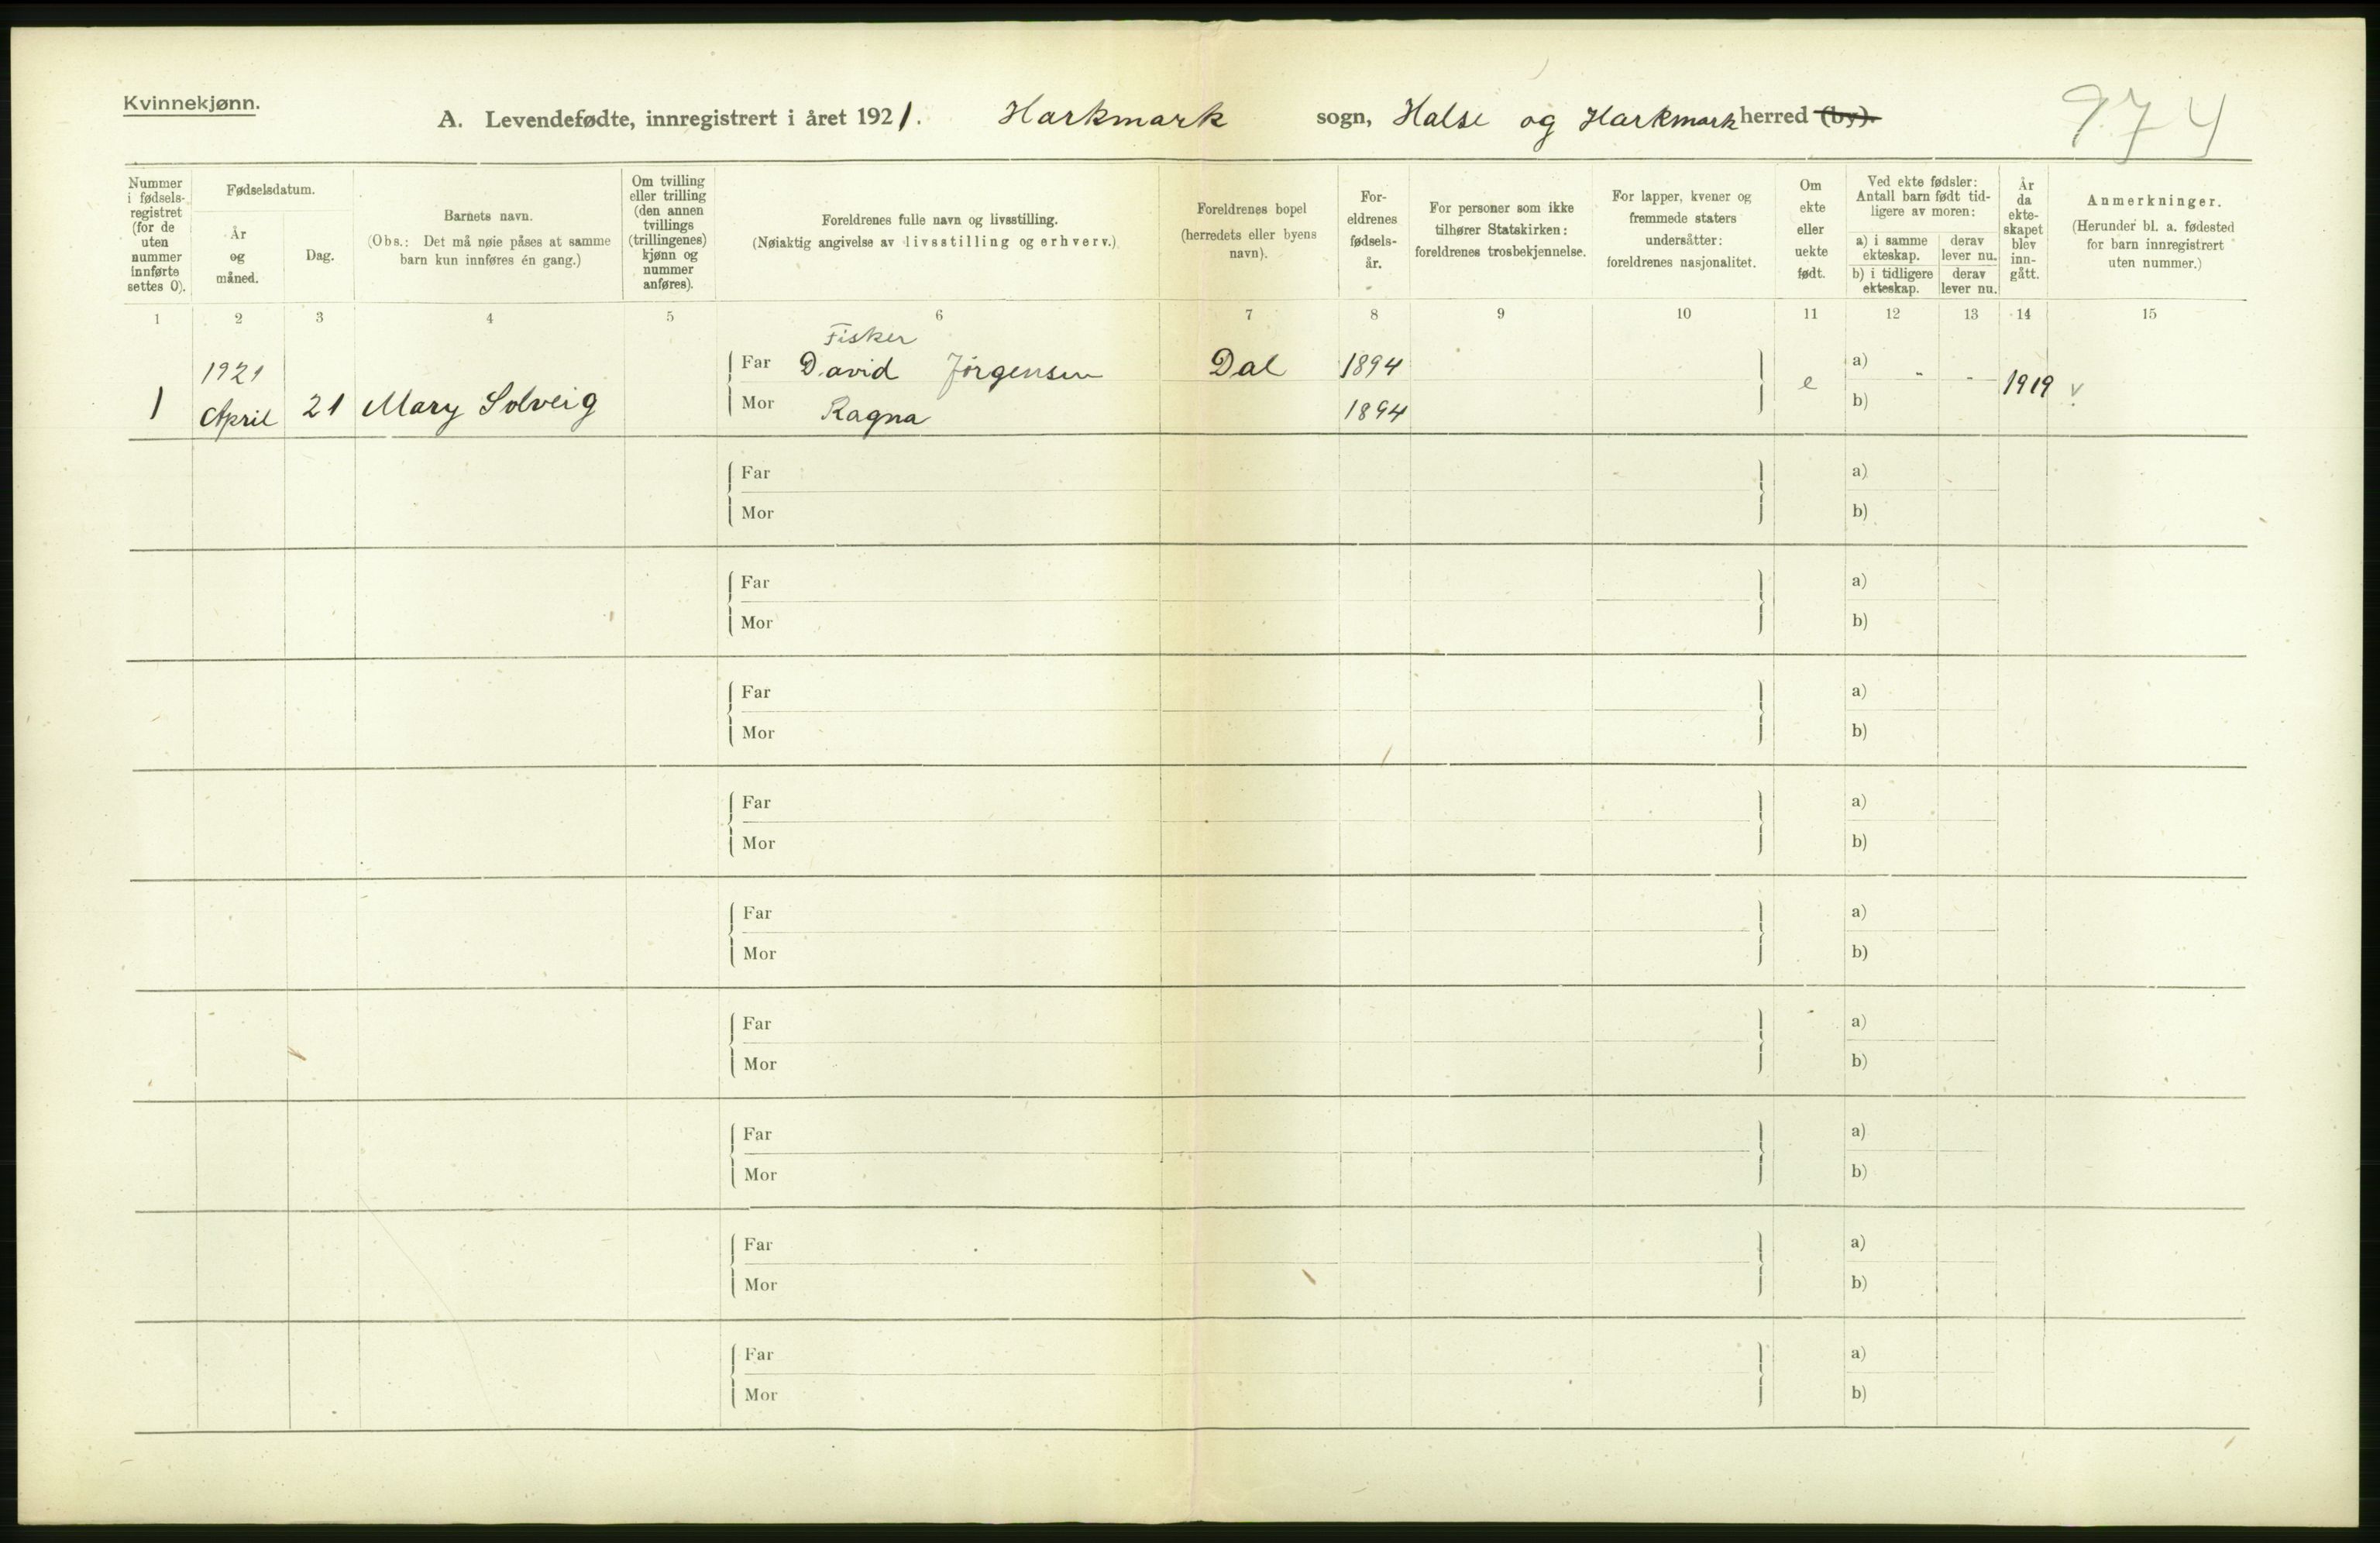 Kvinnekjønn.
A. Levendefødte, innregistrert i året 1921. Harkmark sogn, Halse og Harkmark herred (by).
974
Nummer i fødsels-registret (for de uten nummer innførte settes 0).
Fødselsdatum.
År og måned.
Dag.
Barnets navn.
(Obs.: Det må nøie påses at samme barn kun innføres én gang.)
Om tvilling eller trilling (den annen tvillings (trillingenes) kjønn og nummer anføres).
Foreldrenes fulle navn og livsstilling.
(Nøiaktig angivelse av livsstilling og erhverv.)
Foreldrenes bopel (herredets eller byens navn).
For-eldrenes fødsels-år.
For personer som ikke tilhører Statskirken: foreldrenes trosbekjennelse.
For lapper, kvener og fremmede staters undersåtter: foreldrenes nasjonalitet.
Om ekte eller uekte født.
Ved ekte fødsler: Antall barn født tid-ligere av moren:
a) i samme ekteskap.
derav lever nu.
b) i tidligere ekteskap.
derav lever nu.
År da ekte-skapet blev inn-gått.
Anmerkninger.
(Herunder bl. a. fødested for barn innregistrert uten nummer.)
1 2 3 4 5 6 7 8 9 10 11 12 13 14 15
Fisker
1921 Far David Jørgensen Dal 1894 a) " -
1 April 21 Mary Solveig Mor Ragna 1894 e b) 1919 v
Far a)
Mor b)
Far a)
Mor b)
Far a)
Mor b)
Far a)
Mor b)
Far a)
Mor b)
Far a)
Mor b)
Far a)
Mor b)
Far a)
Mor b)
Far a)
Mor b)